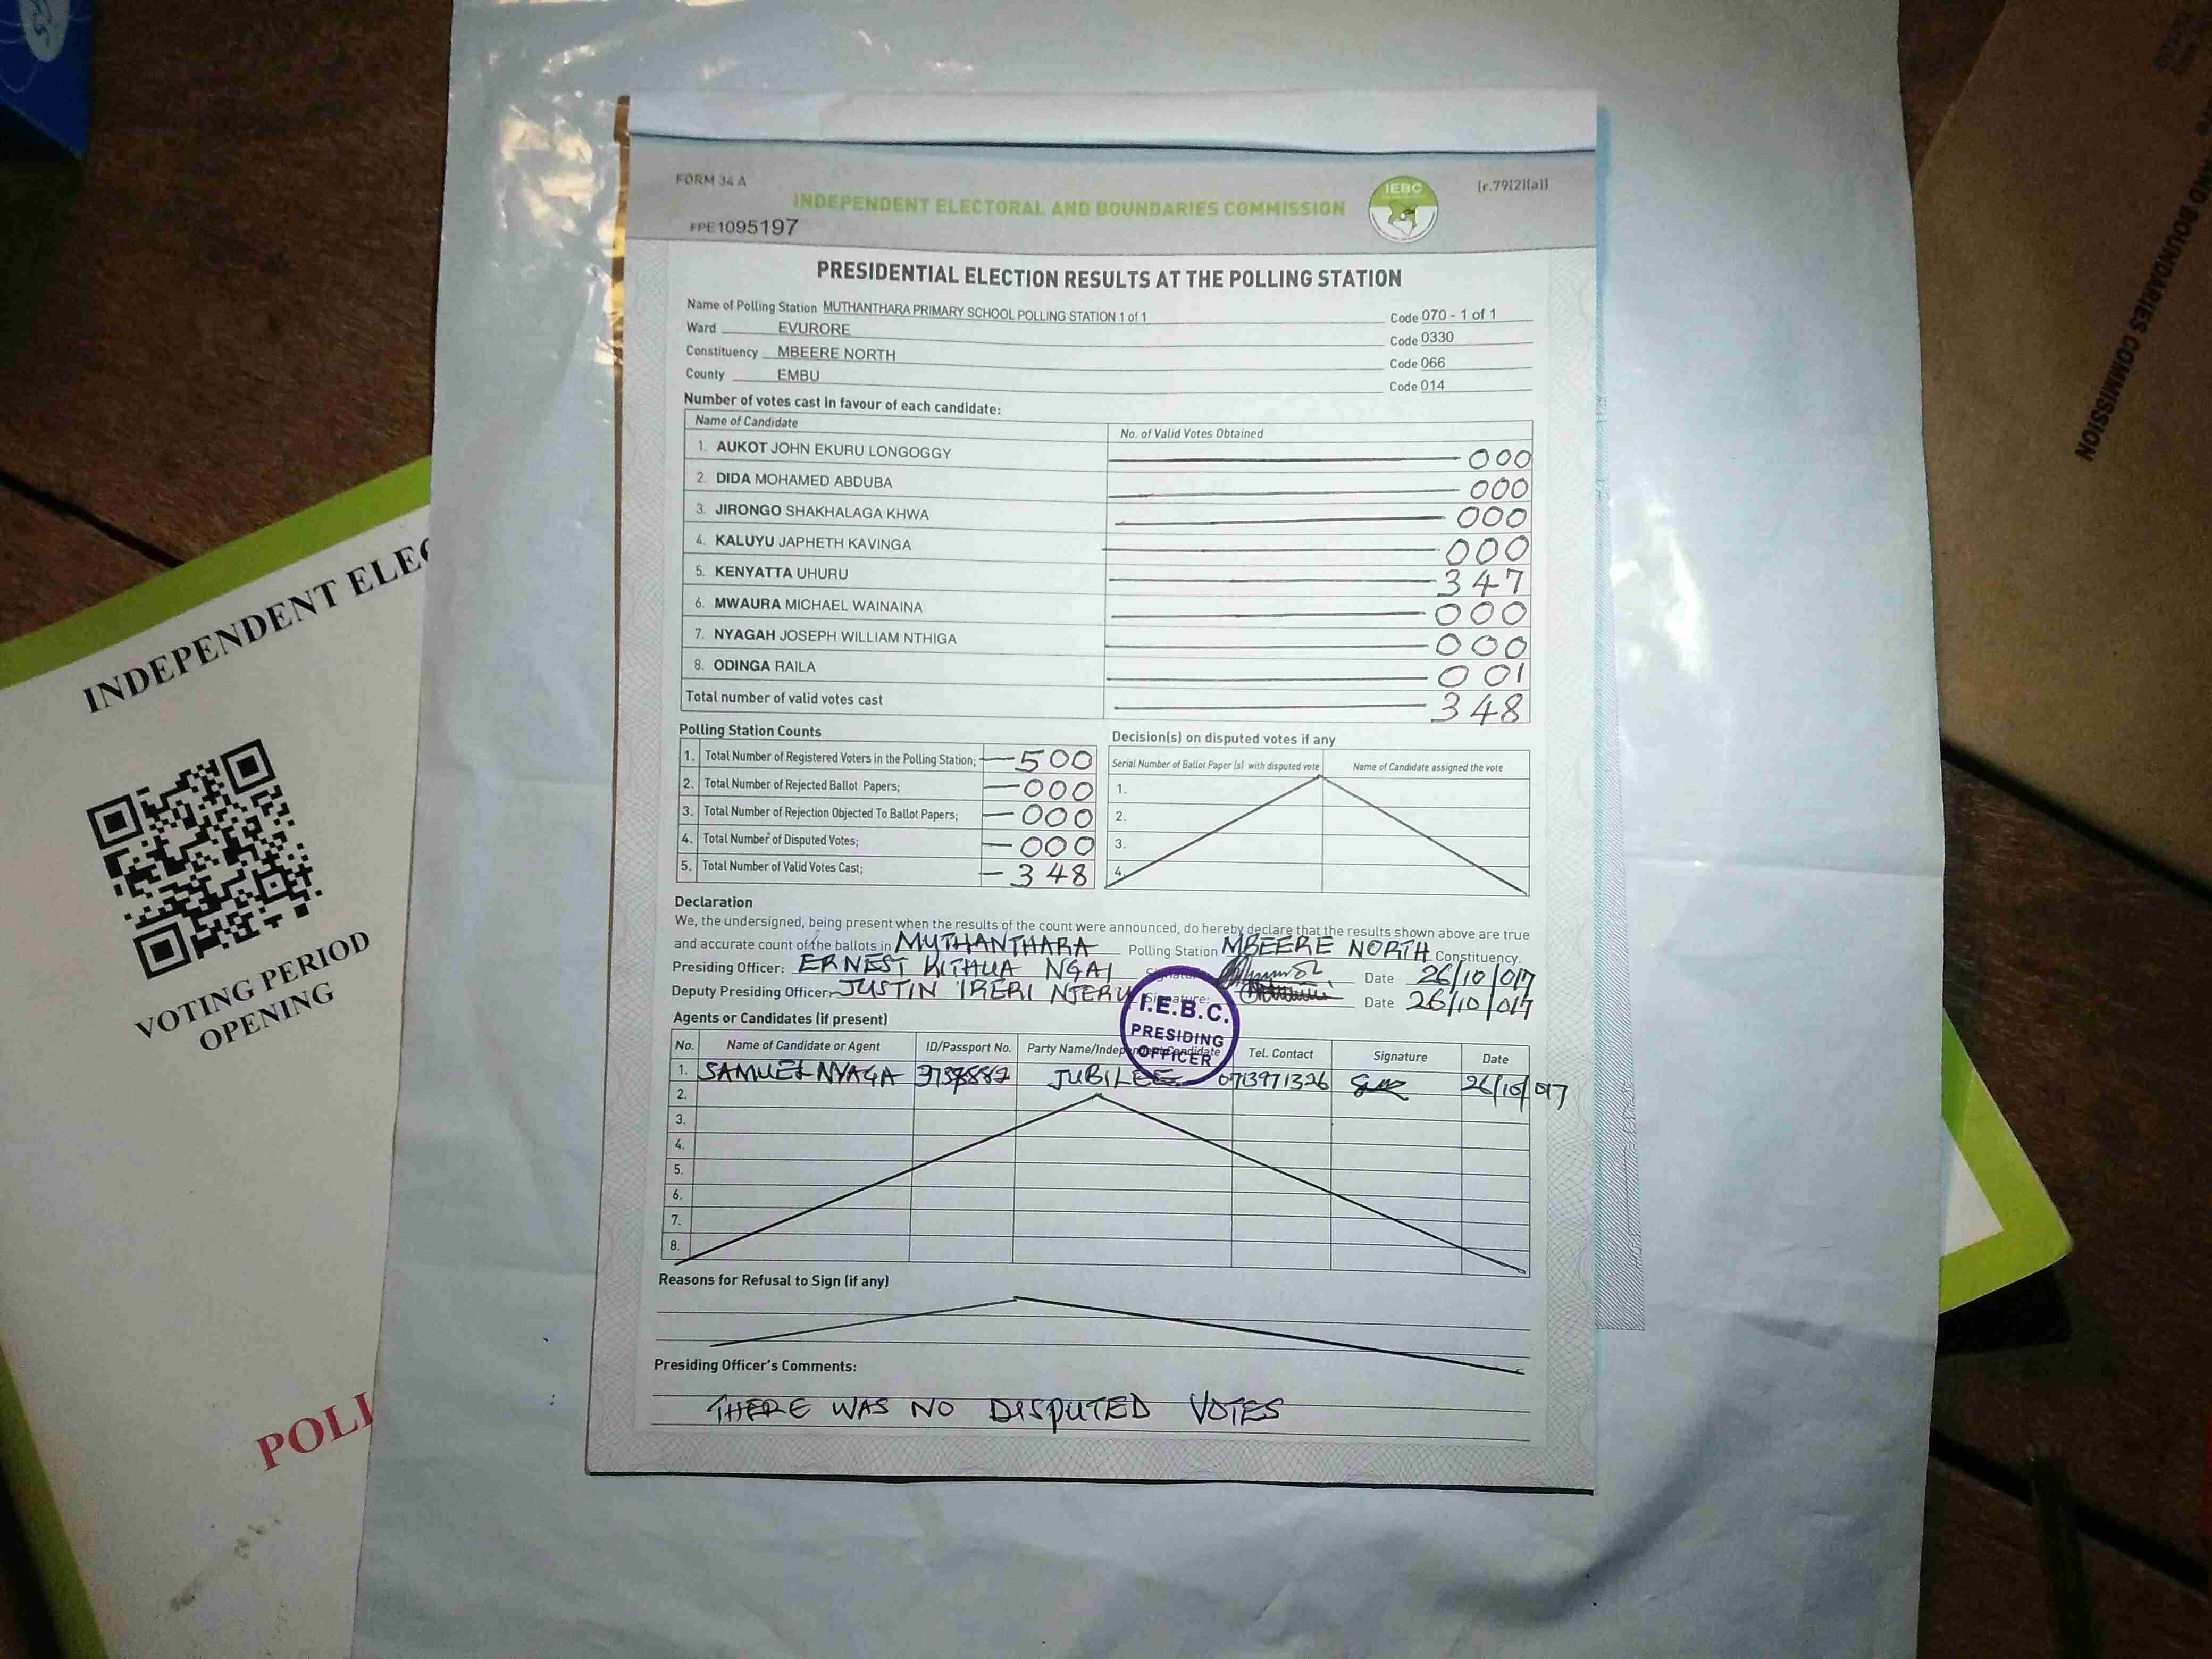 FORM 34 A
[r.79(2)(a)]
IEBC
INDEPENDENT ELECTORAL AND BOUNDARIES COMMISSION
FPE1095197
PRESIDENTIAL ELECTION RESULTS AT THE POLLING STATION
Name of Polling Station MUTHANTHARA PRIMARY SCHOOL POLLING STATION 1 of 1 Code 070 - 1 of 1
Ward EVURORE Code 0330
Constituency MBEERE NORTH Code 066
County EMBU Code 014
Number of votes cast in favour of each candidate:
Name of Candidate No. of Valid Votes Obtained
1. AUKOT JOHN EKURU LONGOGGY 000
2. DIDA MOHAMED ABDUBA 000
3. JIRONGO SHAKHALAGA KHWA 000
4. KALUYU JAPHETH KAVINGA 000
5. KENYATTA UHURU 347
6. MWAURA MICHAEL WAINAINA 000
7. NYAGAH JOSEPH WILLIAM NTHIGA 000
8. ODINGA RAILA 001
Total number of valid votes cast 348
Polling Station Counts
1. Total Number of Registered Voters in the Polling Station; 500
2. Total Number of Rejected Ballot Papers; 000
3. Total Number of Rejection Objected To Ballot Papers; 000
4. Total Number of Disputed Votes; 000
5. Total Number of Valid Votes Cast; 348
Decision(s) on disputed votes if any
Serial Number of Ballot Paper (s) with disputed vote Name of Candidate assigned the vote
1.
2.
3.
4.
Declaration
We, the undersigned, being present when the results of the count were announced, do hereby declare that the results shown above are true
and accurate count of the ballots in MUTHANTHARA Polling Station MBEERE NORTH Constituency.
Presiding Officer: ERNEST KITHUA NGAI Signature: Date 26/10/017
Deputy Presiding Officer: JUSTIN IRERI NJERU Signature: Date 26/10/017
I.E.B.C.
PRESIDING
OFFICER
Agents or Candidates (if present)
No. Name of Candidate or Agent ID/Passport No. Party Name/Independent Candidate Tel. Contact Signature Date
1. SAMUEL NYAGA JUBILEE 0713971326 26/10/017
2.
3.
4.
5.
6.
7.
8.
Reasons for Refusal to Sign (if any)
Presiding Officer's Comments:
THERE WAS NO DISPUTED VOTES
INDEPENDENT ELEC
VOTING PERIOD
OPENING
POLI
AND BOUNDARIES COMMISSION